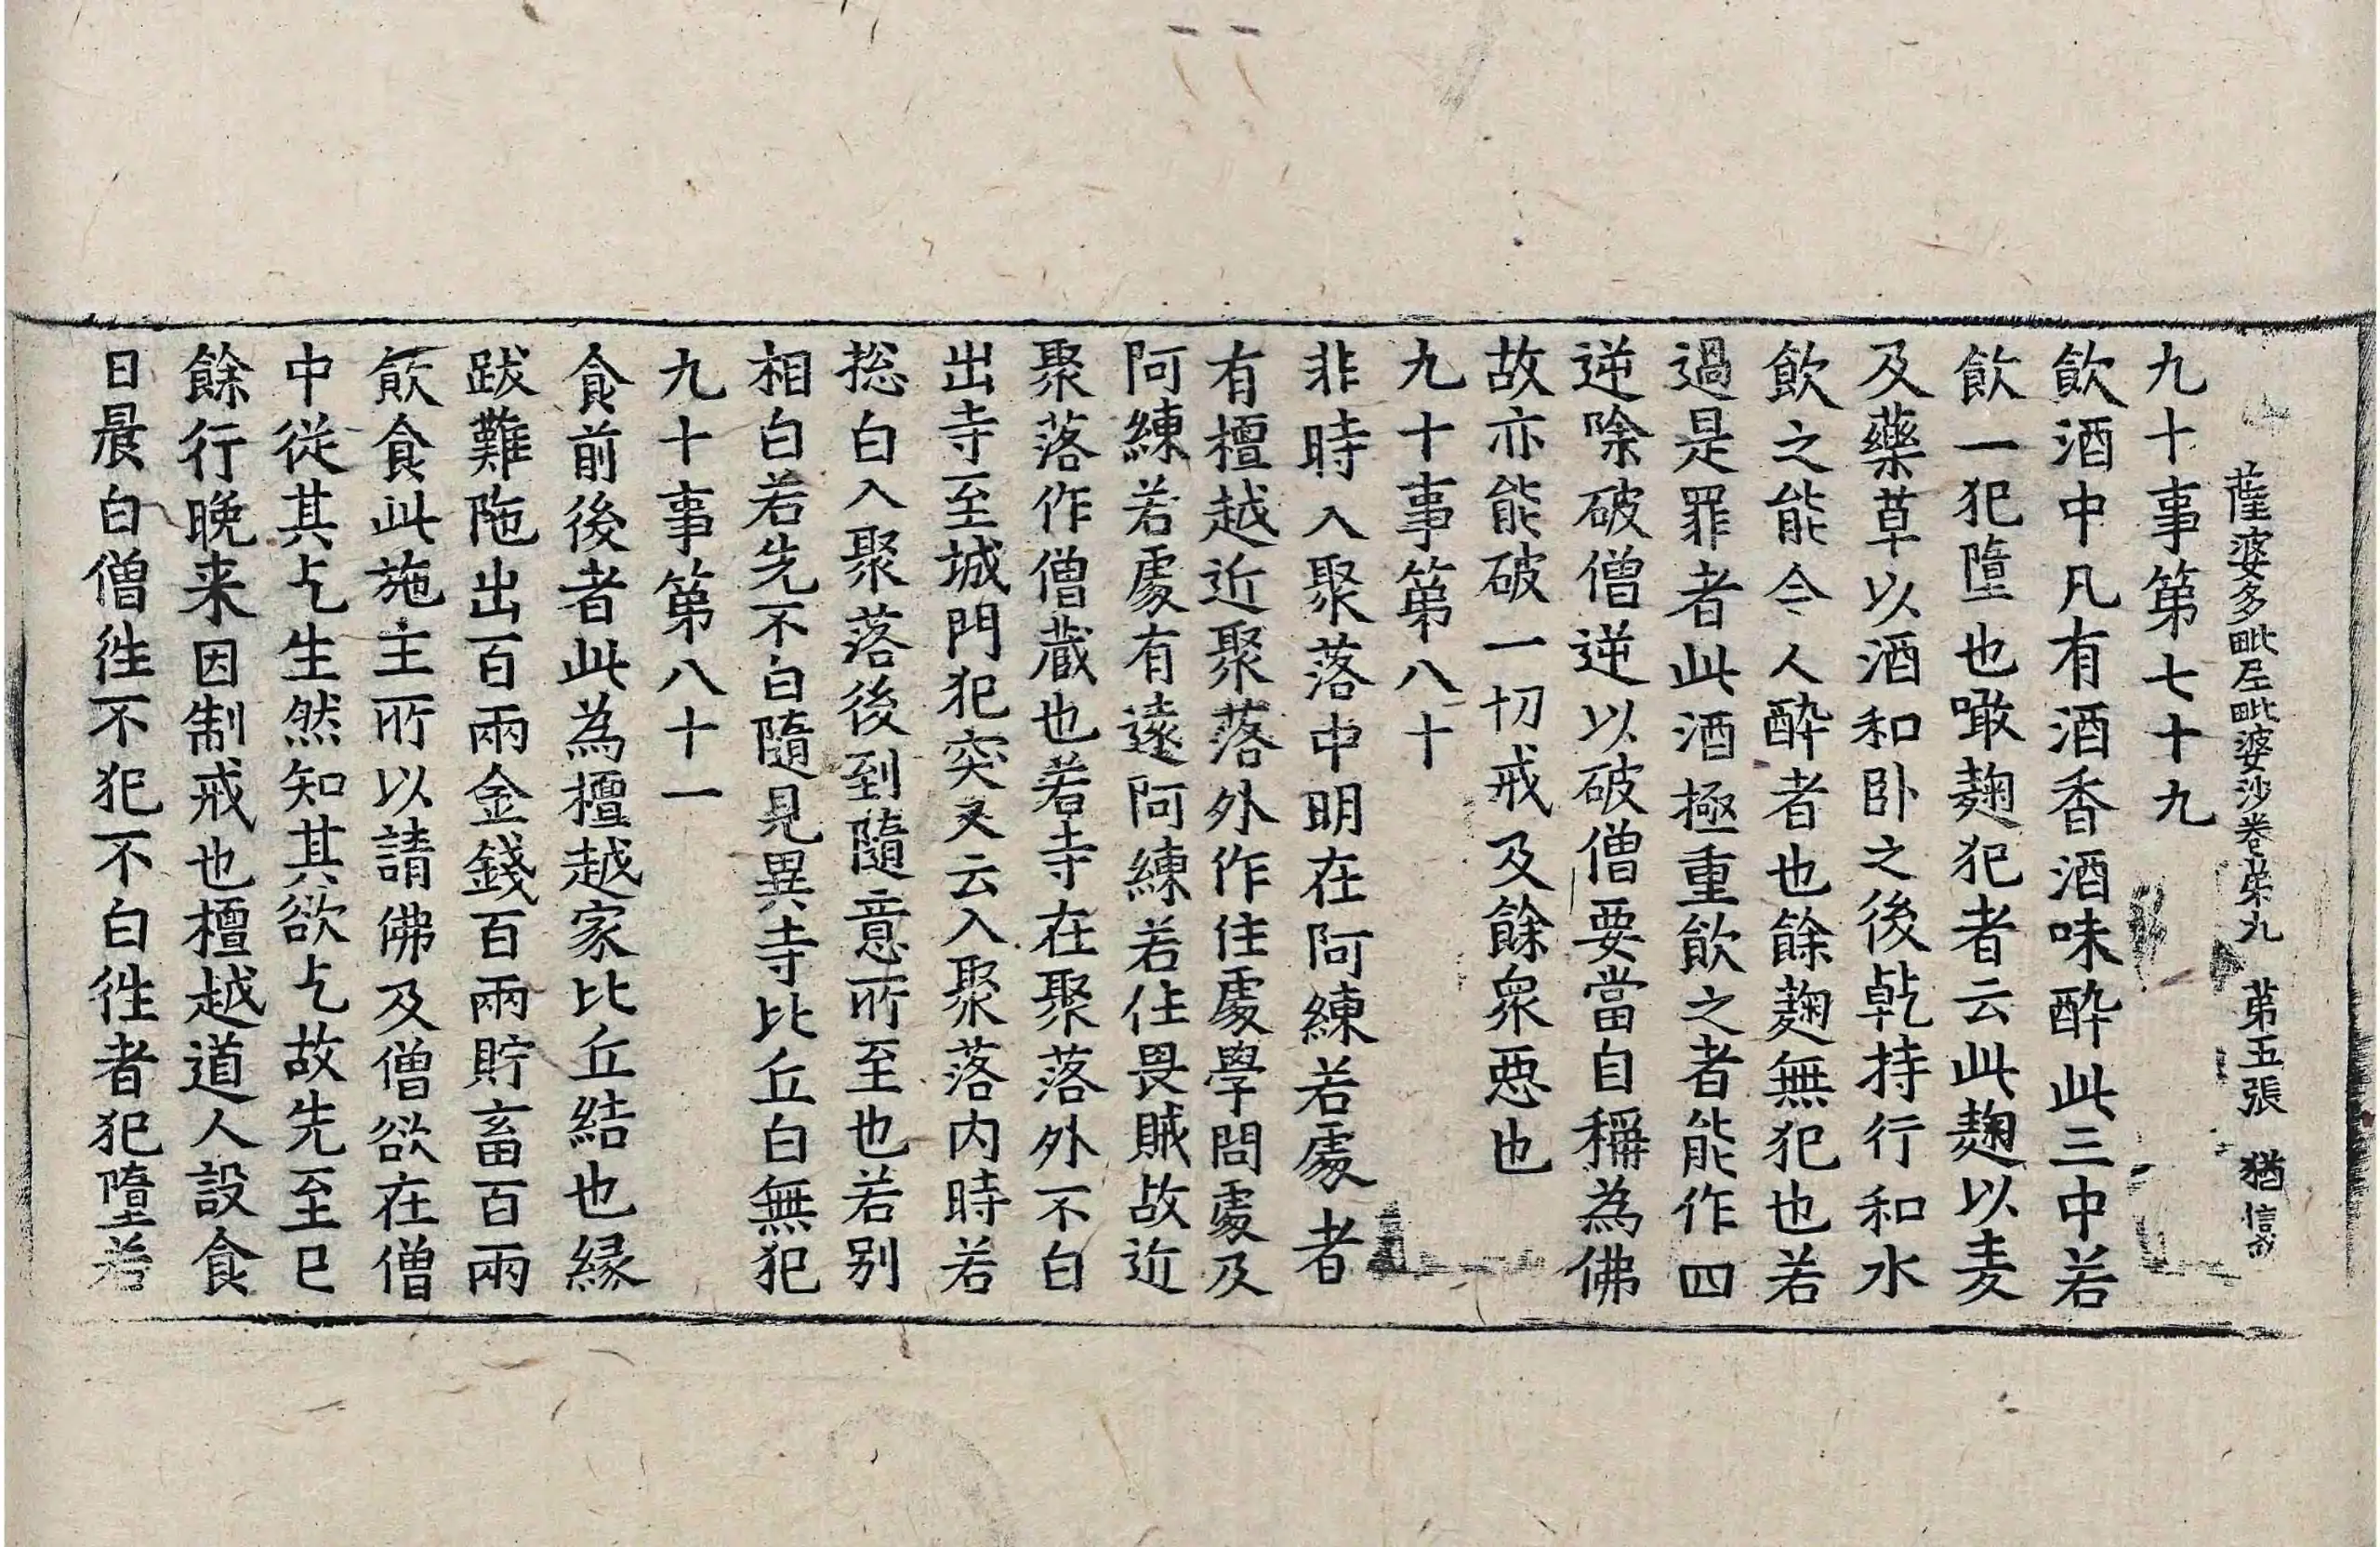 薩婆多毗尼毗婆沙卷第九　第五張　猶
九十事第七十九
飲酒中凡有酒香酒味醉此三中若
飲一犯墮也噉麹犯者云此麹以麦
及藥草以酒和卧之後乹持行和水
飲之能令人醉者也餘麹無犯也若
過是罪者此酒極重飲之者能作四
逆除破僧逆以破僧要當自稱為佛
故亦能破一切戒及餘衆惡也
九十事第八十
非時入聚落中明在阿練若處者
有檀越近聚落外作住處學問處及
阿練若處有遠阿練若住畏賊故近
聚落作僧藏也若寺在聚落外不白
出寺至城門犯突又云入聚落内時若
捴白入聚落後到隨意所至也若别
相白若先不白隨見異寺比丘白無犯
九十事第八十一
食前後者此為檀越家比丘結也縁
跋難陁出百兩金錢百兩貯畜百兩
飲食此施主所以請佛及僧欲在僧
中從其乞生然知其欲乞故先至已
餘行晚来因制戒也檀越道人設食
日晨白僧徃不犯不白徃者犯墮若